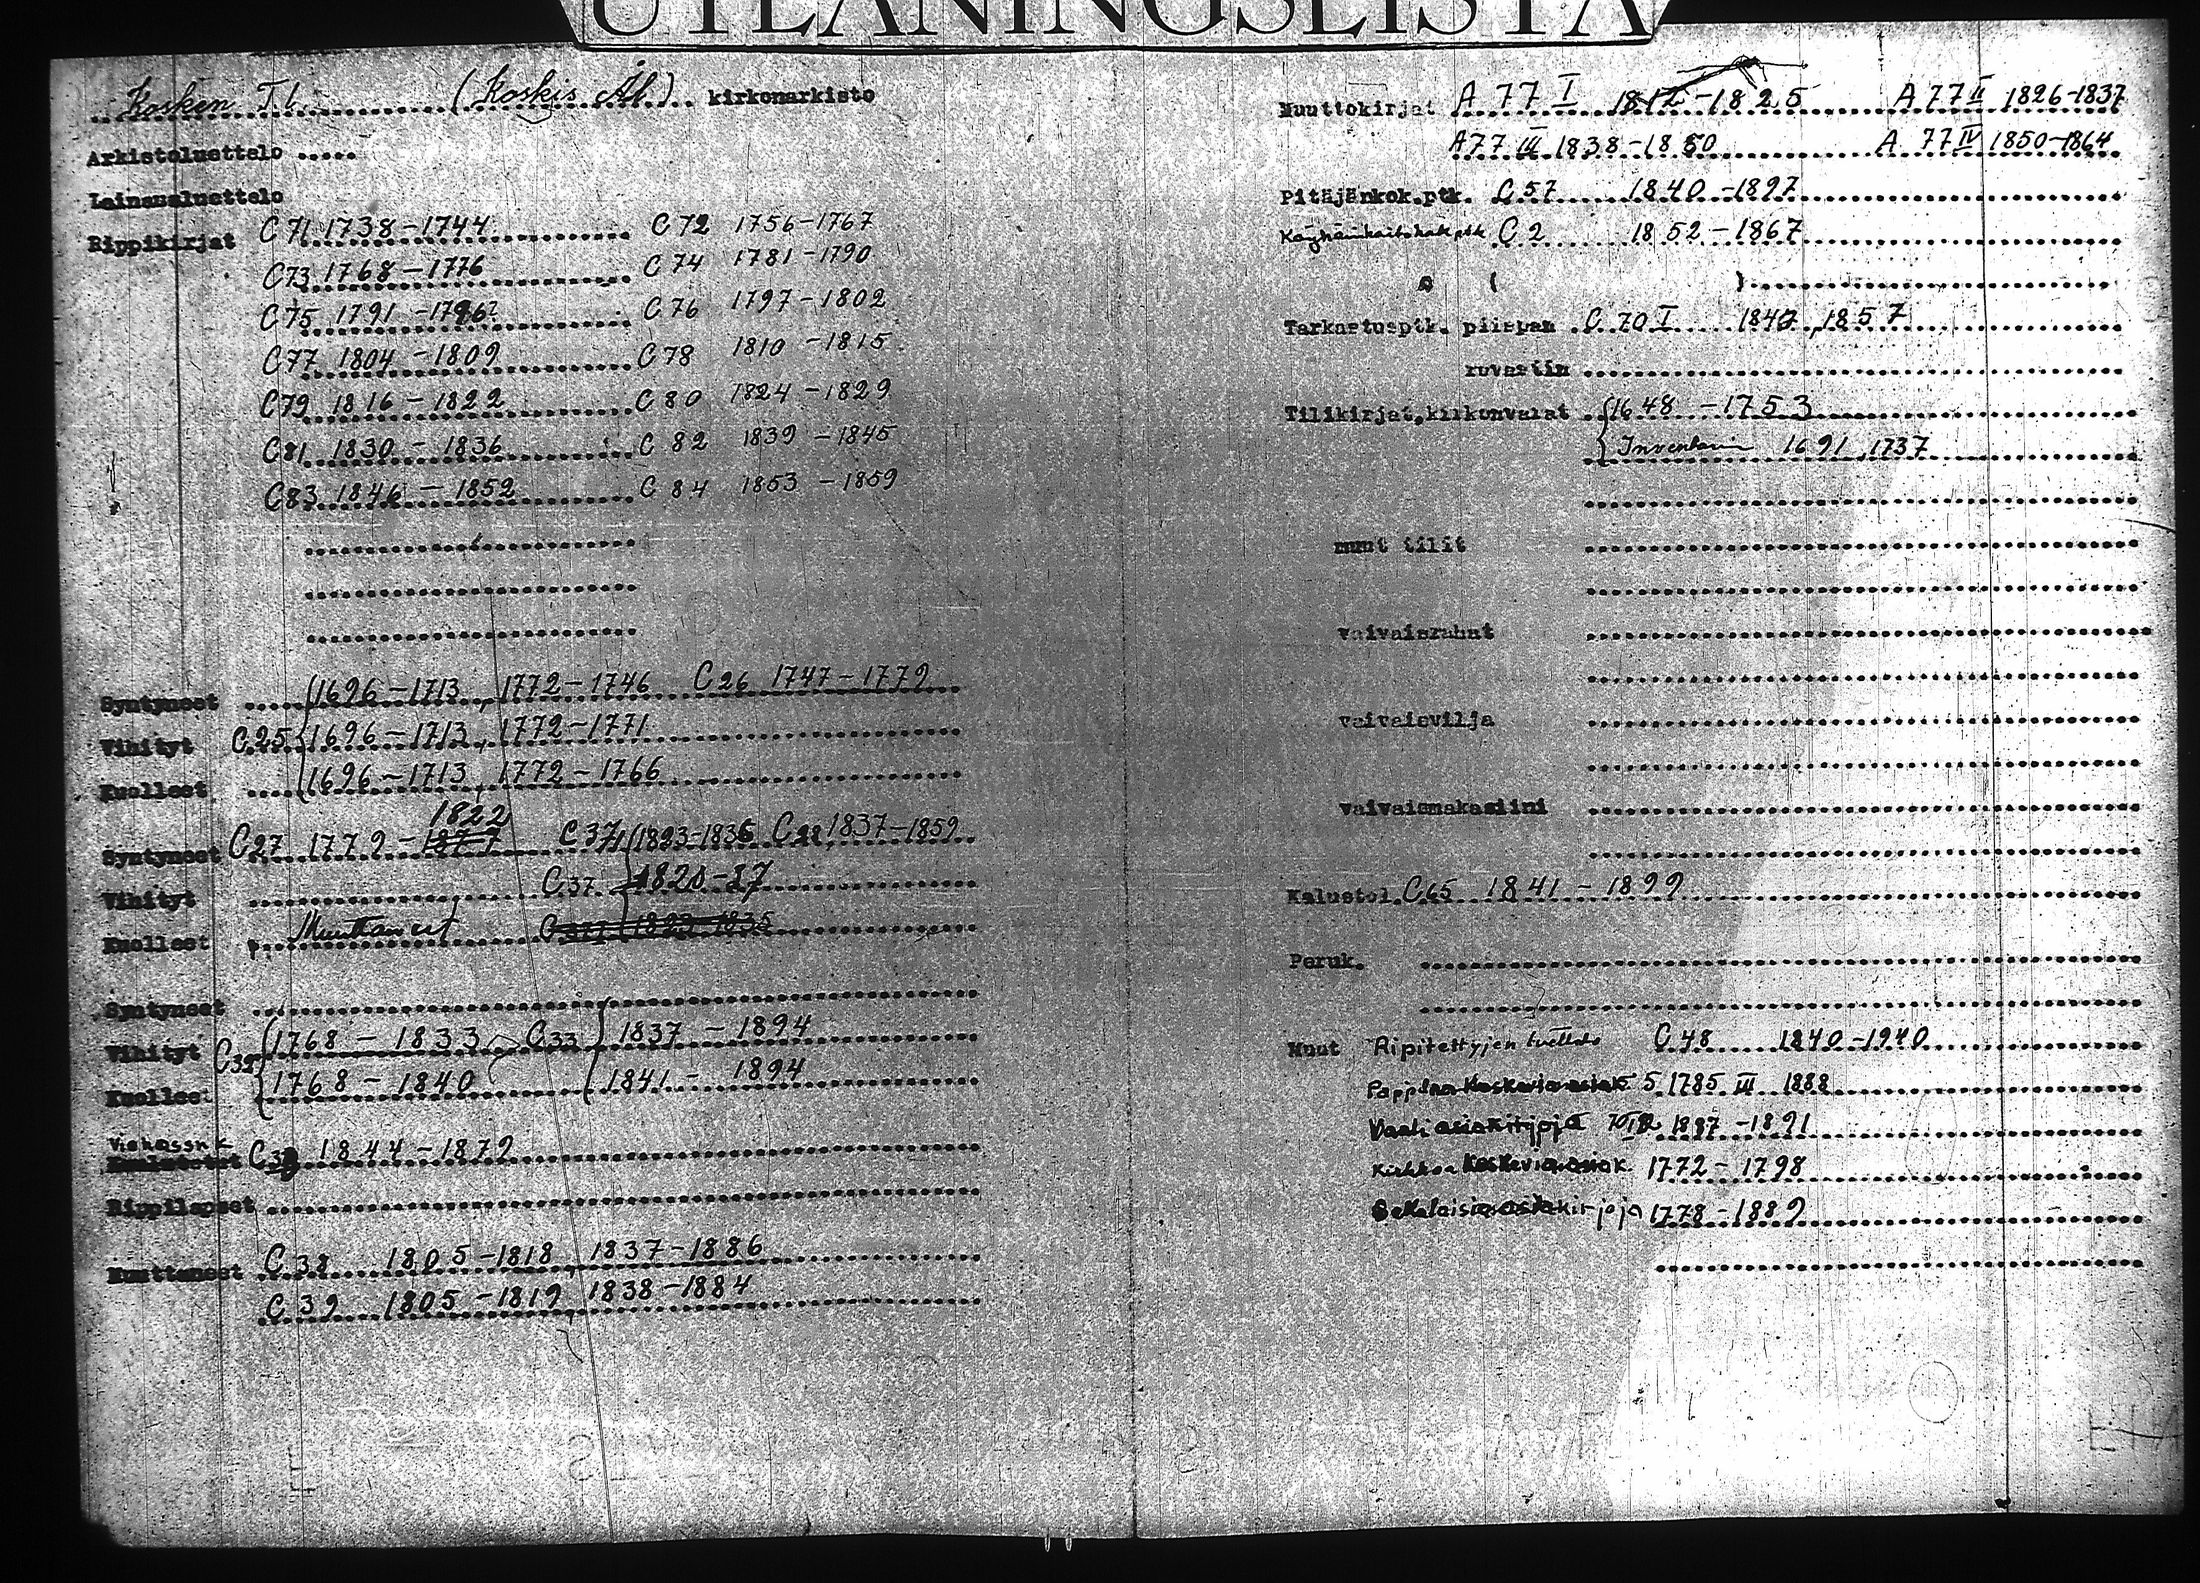 UTLÅNINGSLISTA
Kosken T.l. (Koskis Åb) kirkonarkisto
Arkistoluettelo
Lainausluettelo
Rippikirjat C 71 1738-1744 C 72 1756-1767
C 73 1768-1776 C 74 1781-1790
C 75 1791-1796? C 76 1797-1802
C 77 1804-1809 C 78 1810-1815
C 79 1816-1822 C 80 1824-1829
C 81 1830-1836 C 82 1839-1845
C 83 1846-1852 C 84 1853-1859
Syntyneet 1696-1713, 1772-1746 C 26 1747-1779
Vihityt C 25 1696-1713, 1772-1771
Kuolleet 1696-1713, 1772-1766
1822
Syntyneet C 27 1779-1877 C 37 1823-1836 C 28 1837-1859
Vihityt C 37 1828-37
Kuolleet Muuttaneet 1823-1835
Syntyneet
Vihityt C 32 1768-1833 C 33 1837-1894
Kuolleet 1768-1840 1841-1894
1844-1879
Rippilapset
Muuttaneet C 38 1805-1818, 1837-1886
C 39 1805-1819, 1838-1884
Muuttokirjat A 77 I 1812-1825 A 77 II 1826-1837
A 77 III 1838-1850 A 77 IV 1850-1864
Pitäjänkok.ptk. C 57 1840-1897
C 2 1852-1867
( )
Tarkastusptk. piispan C 70 I 1857
rovastin
Tilikirjat, kirkonvarat 1648-1753
1691, 1737
muut tilit
vaivaisrahat
vaivaisvilja
vaivaismakasiini
Kalustol. C 65 1841-1899
Peruk.
Muut Ripitettyjen luettelo C 48 1840-1940
Pappilaa koskevia asiak. 1785 III 1888
Vaali asiakirjoja 1887-1891
Kirkkoa koskevia asiak. 1772-1798
Sekalaisia asiakirjoja 1778-1889